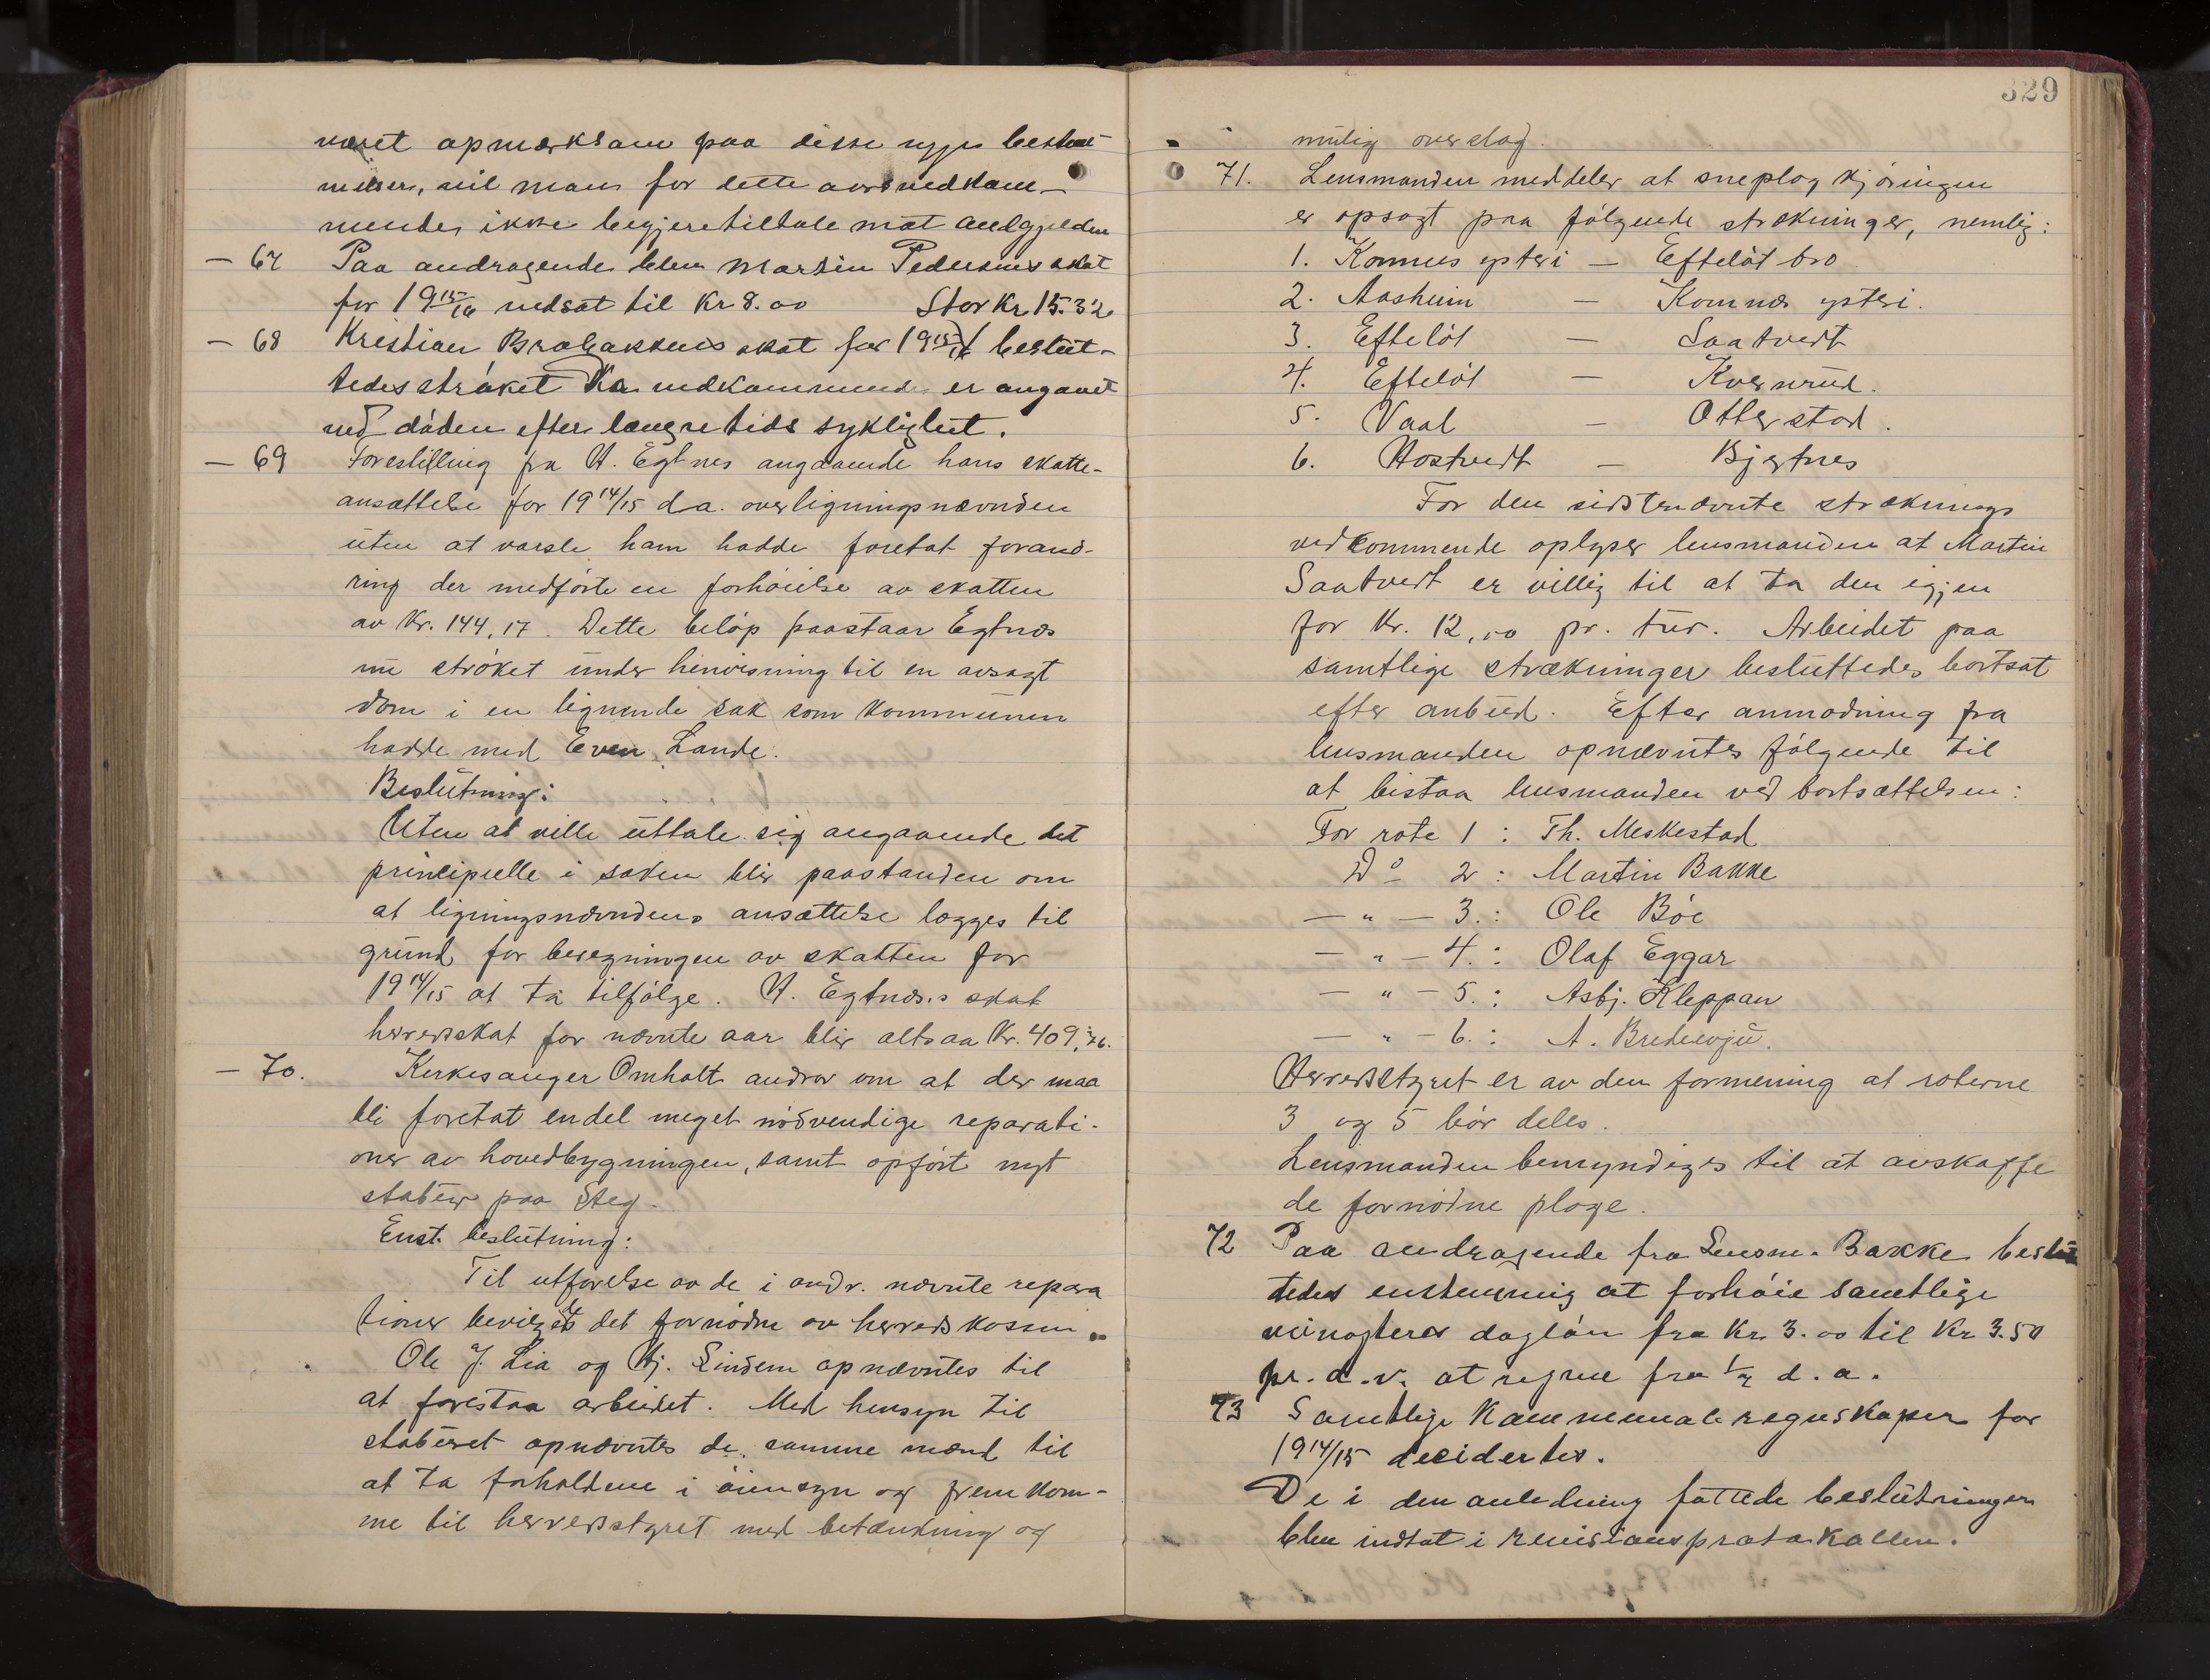 været opmærksom paa disse nye bestem-
melser, vil man for dette aars vedkom-
mende, ikke begjere tiltale mot
— 67 Paa andragende blev Martin Pedersens skat
for 19 15/16 nedsat til Kr 8.00 Stor Kr 15.32
— 68 Kristian Brabakkens skat for 19 15/16 beslut-
tedes strøket da vedkommende er avgaaet
ved døden efter længre tids syklighet.
— 69 Forestilling fra H. Egtnes angaaende hans skatte-
ansættelse for 19 14/15 d a. overligningsnævnden
uten at varsle ham hadde foretat forand-
ring der medførte en forhøielse av skatten
av Kr. 144,17. Dette beløp paastaar Egtnæs
nu strøket under henvisning til en avsagt
dom i en lignende sak som kommunen
hadde med Even Lande.
Beslutning:
Uten at ville uttale sig angaaende det
principielle i saken blir paastanden om
at ligningsnævndens ansættelse lægges til
grund for beregningen av skatten for
19 14/15 at ta tilfølge. H. Egtnæs.s skat
herredsskat for nævnte aar blir altsaa Kr. 409,76.
— 70. Kirkesanger Omholt andrar om at der maa
bli foretat endel meget nødvendige reparati-
oner av hovedbygningen, samt opført nyt
stabur paa Steg.
Enst. beslutning:
Til utførelse av de i andr. nævnte repara
tioner bevilget det fornødne av herredskassen.
Ole J. Lia og Hj. Lindem opnævntes til
at forestaa arbeidet. Med hensyn til
staburet opnævntes de samme mænd til
at ta forholdene i øiensyn og fremkom-
me til herredsstyret med betænkning og
329
mulig overslag.
71. Lensmanden meddeler at sneplogkjøringen
er opsagt paa følgende strækninger, nemlig:
1. Komnes ysteri — Efteløt bro
2. Aasheim — Komnæs ysteri.
3. Efteløt — Saatvedt
4. Efteløt — Kvernrud.
5. Vaal — Otterstad.
6. Hostvedt — Bjertnes
For den sidstenævnte stræknings
vedkommende oplyser lensmanden at Martin
Saatvedt er villig til at ta den igjen
for Kr. 12,00 pr. tur. Arbeidet paa
samtlige strækninger besluttedes bortsat
efter anbud. Efter anmodning fra
lensmanden opnævntes følgende til
at bistaa lensmanden ved bortsættelsen:
For rote 1 : Th. Meskestad
Do 2 : Martin Bakke
— " — 3. : Ole Bøe
— " — 4. : Olaf Eggar
— " — 5. : Asbj. Kleppan
— " — 6. : A.
Herredsstyret er av den formening at roterne
3 og 5 bør deles.
Lensmanden bemyndiges til at avskaffe
de fornødne ploge.
72 Paa andragende fra Lensm. Bakke beslut
tedes enstemmig at forhøie samtlige
veivogteres dagløn fra Kr. 3.00 til Kr 3.50
pr. d. v. at regne fra d. a.
73 Samtlige Kommunale regnskaper for
19 14/15 decidertes.
De i den anledning fattede beslutninger
blev indtat i Revisionsprotokollen.